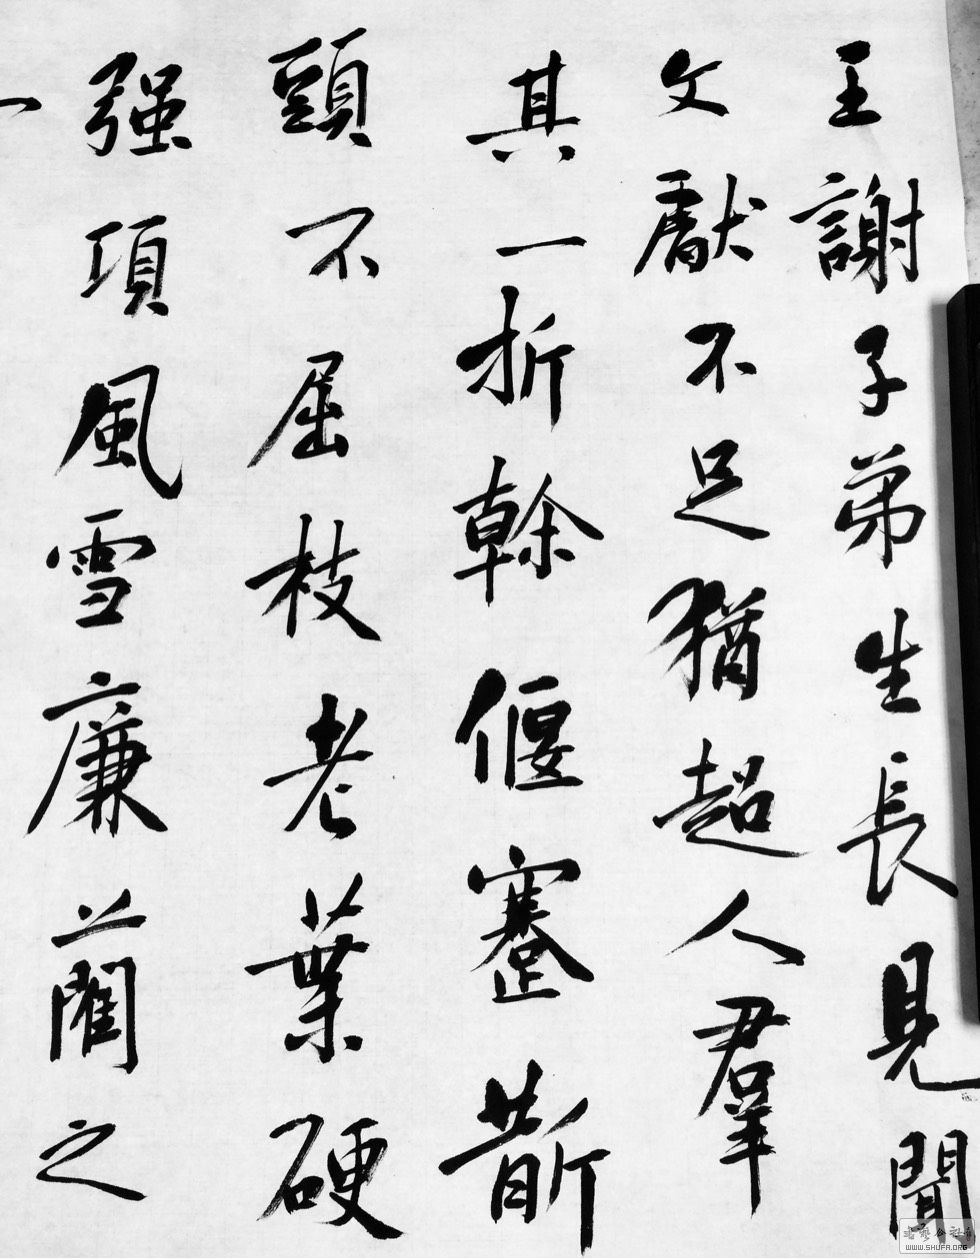 王謝子弟生長見聞
文獻不足猶超人羣
其一折榦偃蹇斮
頭不屈枝老葉硬
强項風雪廉藺之
WWW.SHUFA.ORG